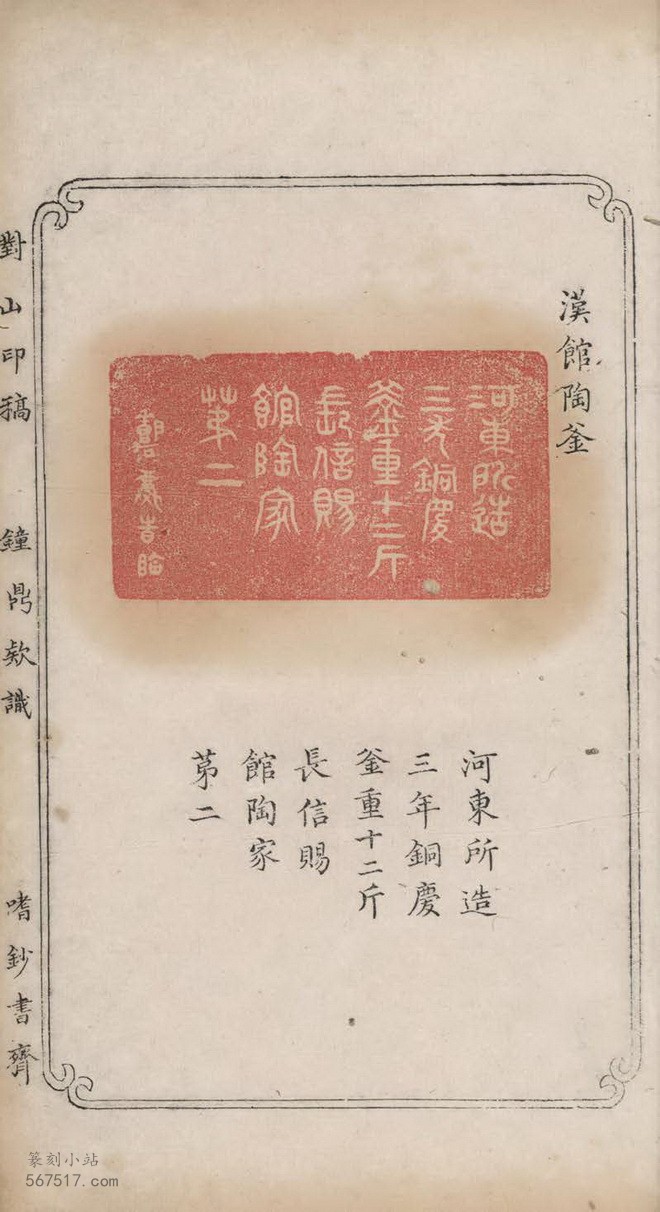 漢館陶釜
河東所造
三年銅慶
釜重十二斤
長信賜
館陶家
苐二
河東所造
三年銅慶
釜重十二斤
長信賜
館陶家
苐二
對山印稿
鐘鼎欵識
嗜鈔書齋
篆刻小站
567517.com